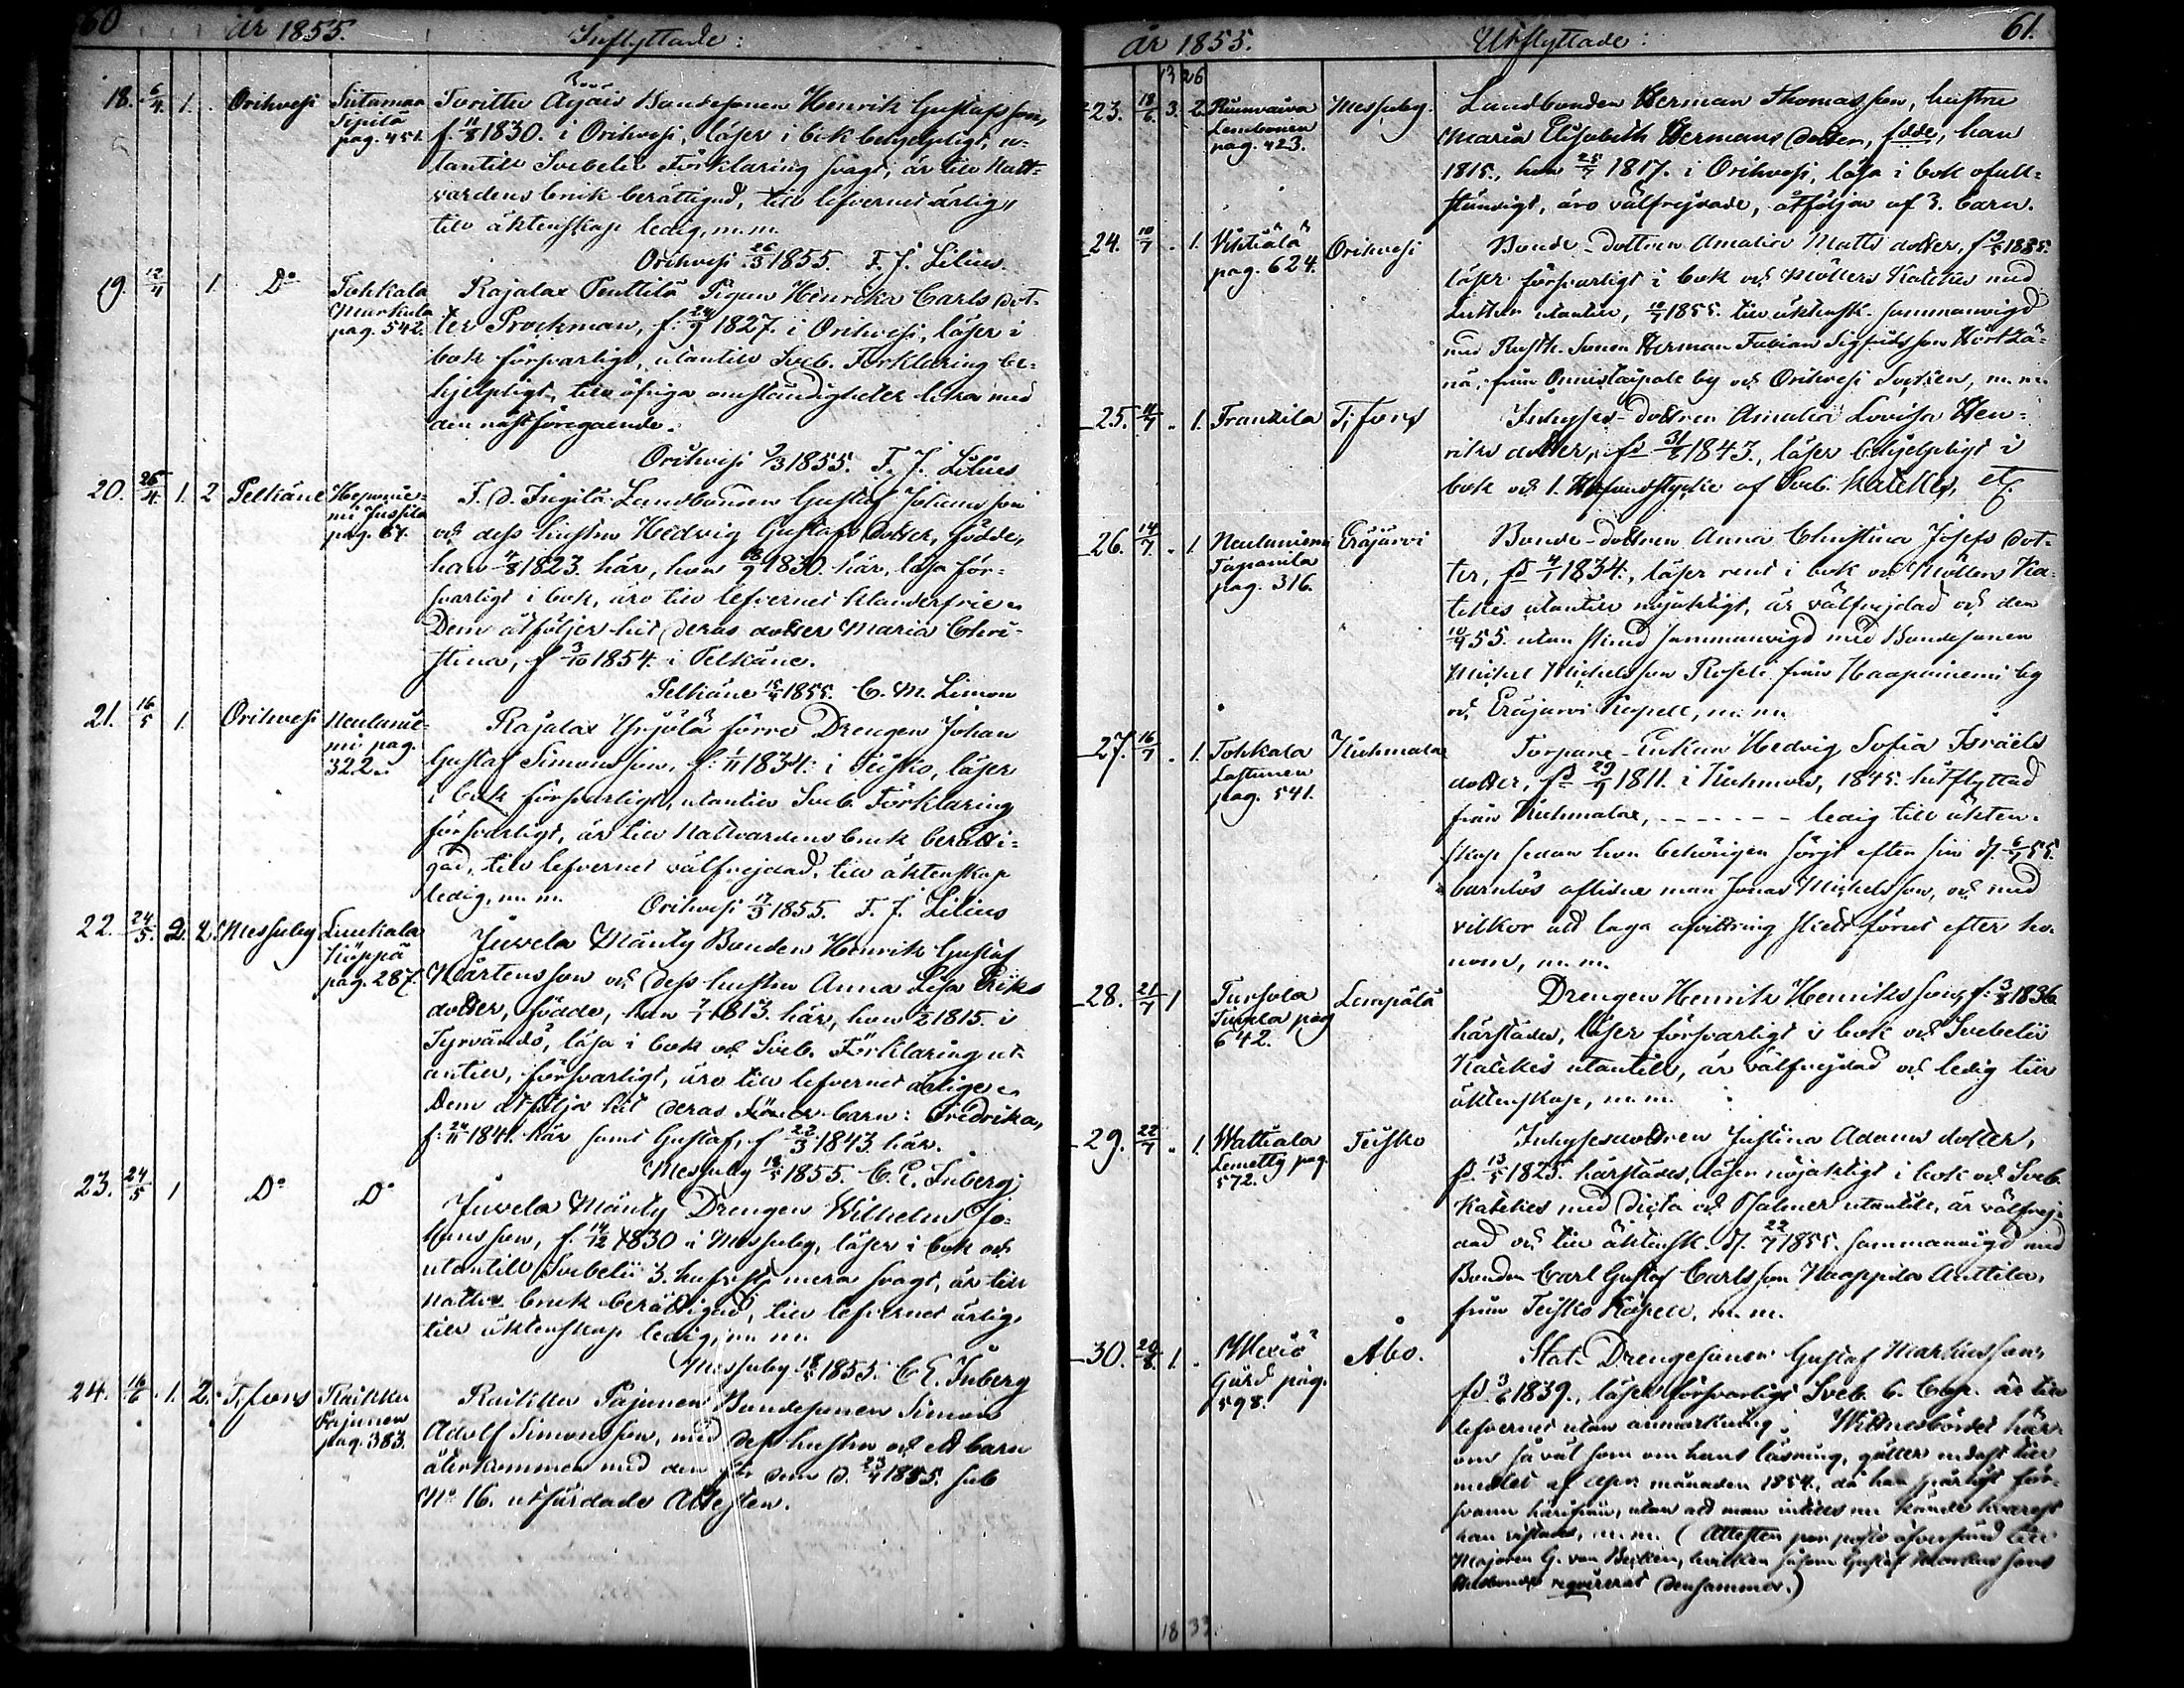 60 år 1855. Inflyttade:
18. 6/4. 1. Orihvesi Siitamaa Sipilä pag. 451. Toritte Äijäis Bondesonen Henrik Gustafsson,
f. 11/8 1830. i Orihvesi, läser i bok behjelpligt, u-
tantill Svebelii Förklaring svagt, är till Natt-
vardens bruk berättigad, till lefvernet ärlig,
till äktenskap ledig, m.m.
Orihvesi 26/3 1855. F. J. Lilius.
19. 12/4 1 Do Tohkala Markula pag. 542. Rajalax Penttilä Pigan Henrika Carls dot-
ter Prockman, f: 24/9 1827. i Orihvesi, läser i
bok försvarligt, utantill Sveb. Förklaring be-
hjelpligt, till öfriga omständigheter lika med
den nästföregaende.
Orihvesi 9/3 1855. F. J. Lilius
20. 26/4. 1. 2 Pelkäne pag. 67. Landbonden Gustaf Johansson
och dess hustru Hedvig Gustafs dotter, födde,
han 4/8 1823. här, hon 18/9 1830. här, läsa för-
svarligt i bok, äro till lefvernet klanderfrie.
Dem åtföljer hit deras dotter Maria Chri-
stina, f 3/10 1854. i Pelkäne.
Pelkäne 15/4 1855. C. M. Limon
21. 16/5 1. Orihvesi Neulanie- mi pag. 322. Rajalax Yrjölä förre Drengen Johan
Gustaf Simonsson, f: 1/11 1834: i Teisko, läser
i bok försvarligt, utantill Sveb. Förklaring
försvarligt, är till Nattvardens bruk berätti-
gad, till lefvernet välfrejdad, till äktenskap
ledig, m.m. Orihvesi 17/3 1855. F. J. Lilius
22. 24/5. 2. 2. Messuby Liuhala pag. 287. Juvela Mänty Bonden Henrik Gustaf
Mårtensson och dess hustru Anna Lisa Eriks
dotter, födde, han 7/1 1813. här, hon 1815. i
Tyrvändö, läsa i bok och Sveb. Förklaring ut-
antill, försvarligt, äro till lefvernet ärlige.
Dem åtfölja hit deras barn: Fredrika,
f: 24/11 1841. här samt Gustaf, f 22/3 1843. här.
Messuby 18/5 1855. C. E. Inberg
23. 24/5 1 Do Do Juvela Mänty Drengen Wilhelm Jo-
hansson, f. 14/12 1830 i Messuby, läser i bok och
utantill Svebelii 3. hufvst. mera svagt, är till
Nattv. bruk berättigad, till lefvernet ärlig,
till äktenskap ledig, m.m.
Messuby 18/5 1855. C E. Inberg
24. 16/6 1. 2. T, fors Raikku Pajunen pag. 383. Raikku Pajunen Bondesonen Simon
Adolf Simonsson, med dess hustru och ett barn
återkommen med den för dem d. 23/4 1855. sub
No 16. utfärdade Attesten.
år 1855. Utflyttade: 61.
13 26
23. 18/6. 3. 2 pag. 423. Messuby. Landbonden Herman Thomasson, hustru
Maria Elisabeth Hermans dotter, födde, han
1815., hon 25/7 1817. i Orihvesi, läsa i bok ofull-
ständigt, äro välfrejdade, åtföljas af 3. barn.
24. 10/7 1. pag. 624. Orihvesi Bonde-dottren Amalia Matts dotter, 1835.
läser försvarligt i bok och Möllers Kateches med
Luthers utantill, 10/7 1855. till äktensk. sammanvigd
med Rusth. Sonen Herman Fabian Sigfridsson
nä, från Onnistaipale by och Orihvesi Socken, m.m.
25. 11/7 1. Frankila T, fors Inhyses-dottren Amalia Lovisa Hen-
riks dotter, fd 31/6 1843., läser behjelpligt i
bok och 1. Hufvudstycke af Sveb. Kateches, etc.
26. 14/7 1 Neulaniemi Tapanila pag. 316. Eräjärvi Bonde-dottren Anna Christina Josefs dot-
ter, fd 4/1 1834., läser rent i bok och Möllers Ka-
teches utantill nöjaktigt, är välfrejdad och den
10/4 55. utan sammanvigd med Bondesonen
Michel Michelsson från Haapaniemi by
och Eräjärvi Kapell, m.m.
27. 16/7 1. Tohkala Lastunen pag. 541. Kuhmalax Torpare-Enkan Hedvig Sofia Israels
dotter, fd 29/9 1811. i Kuhmois, 1845. hitflyttad
från Kuhmalax, - - - - - - - ledig till äkten-
skap sedan hon behörigen sörjt efter sin d. 6/7 55.
barnlös aflidne man Jonas Michelsson, och med
vilkor att laga afvittring skett förut efter ho-
nom, m.m.
28. 21/7 1 Tursola Tuvala pag 642. Lempälä Drengen Henrik Henriksson, f: 3/8 1836
härstädes, läser försvarligt i bok och Svebelii
Kateches utantill, är välfrejdad och ledig till
äktenskap, m.m.
29. 22/7 1. Wattiala Lemetty pag. 572. Teisko Inhysesdottren Justina Adams dotter,
fd. 13/5 1825. härstädes, läser nöjaktigt i bok och Sveb.
Kateches med Dicta och Psalmer utantill, är välfrej-
dad och till äktensk. d. 22/7 1855. sammanvigd med
Bonden Carl Gustaf Carlsson Anttila,
från Teisko Kapell, m.m.
30. 20/8. 1. Gård pag. 598. Åbo. Stat-Drengesonen Gustaf Markusson,
fd 3/6 1839., läser försvarligt Sveb. 6. Cap. är till
lefvernet utan anmärkning. Wittnesbördet här-
om så väl som om hans läsning, gäller endast till
medlet af månaden 1854., då han för-
svann härifrån, utan att man intills nu kände hvarest
han vistades, m.m. (Attesten per posto öfversänd till
Majoren G. von hvilken såsom Gustaf Markussons
requirerat densamma.)
18 33.